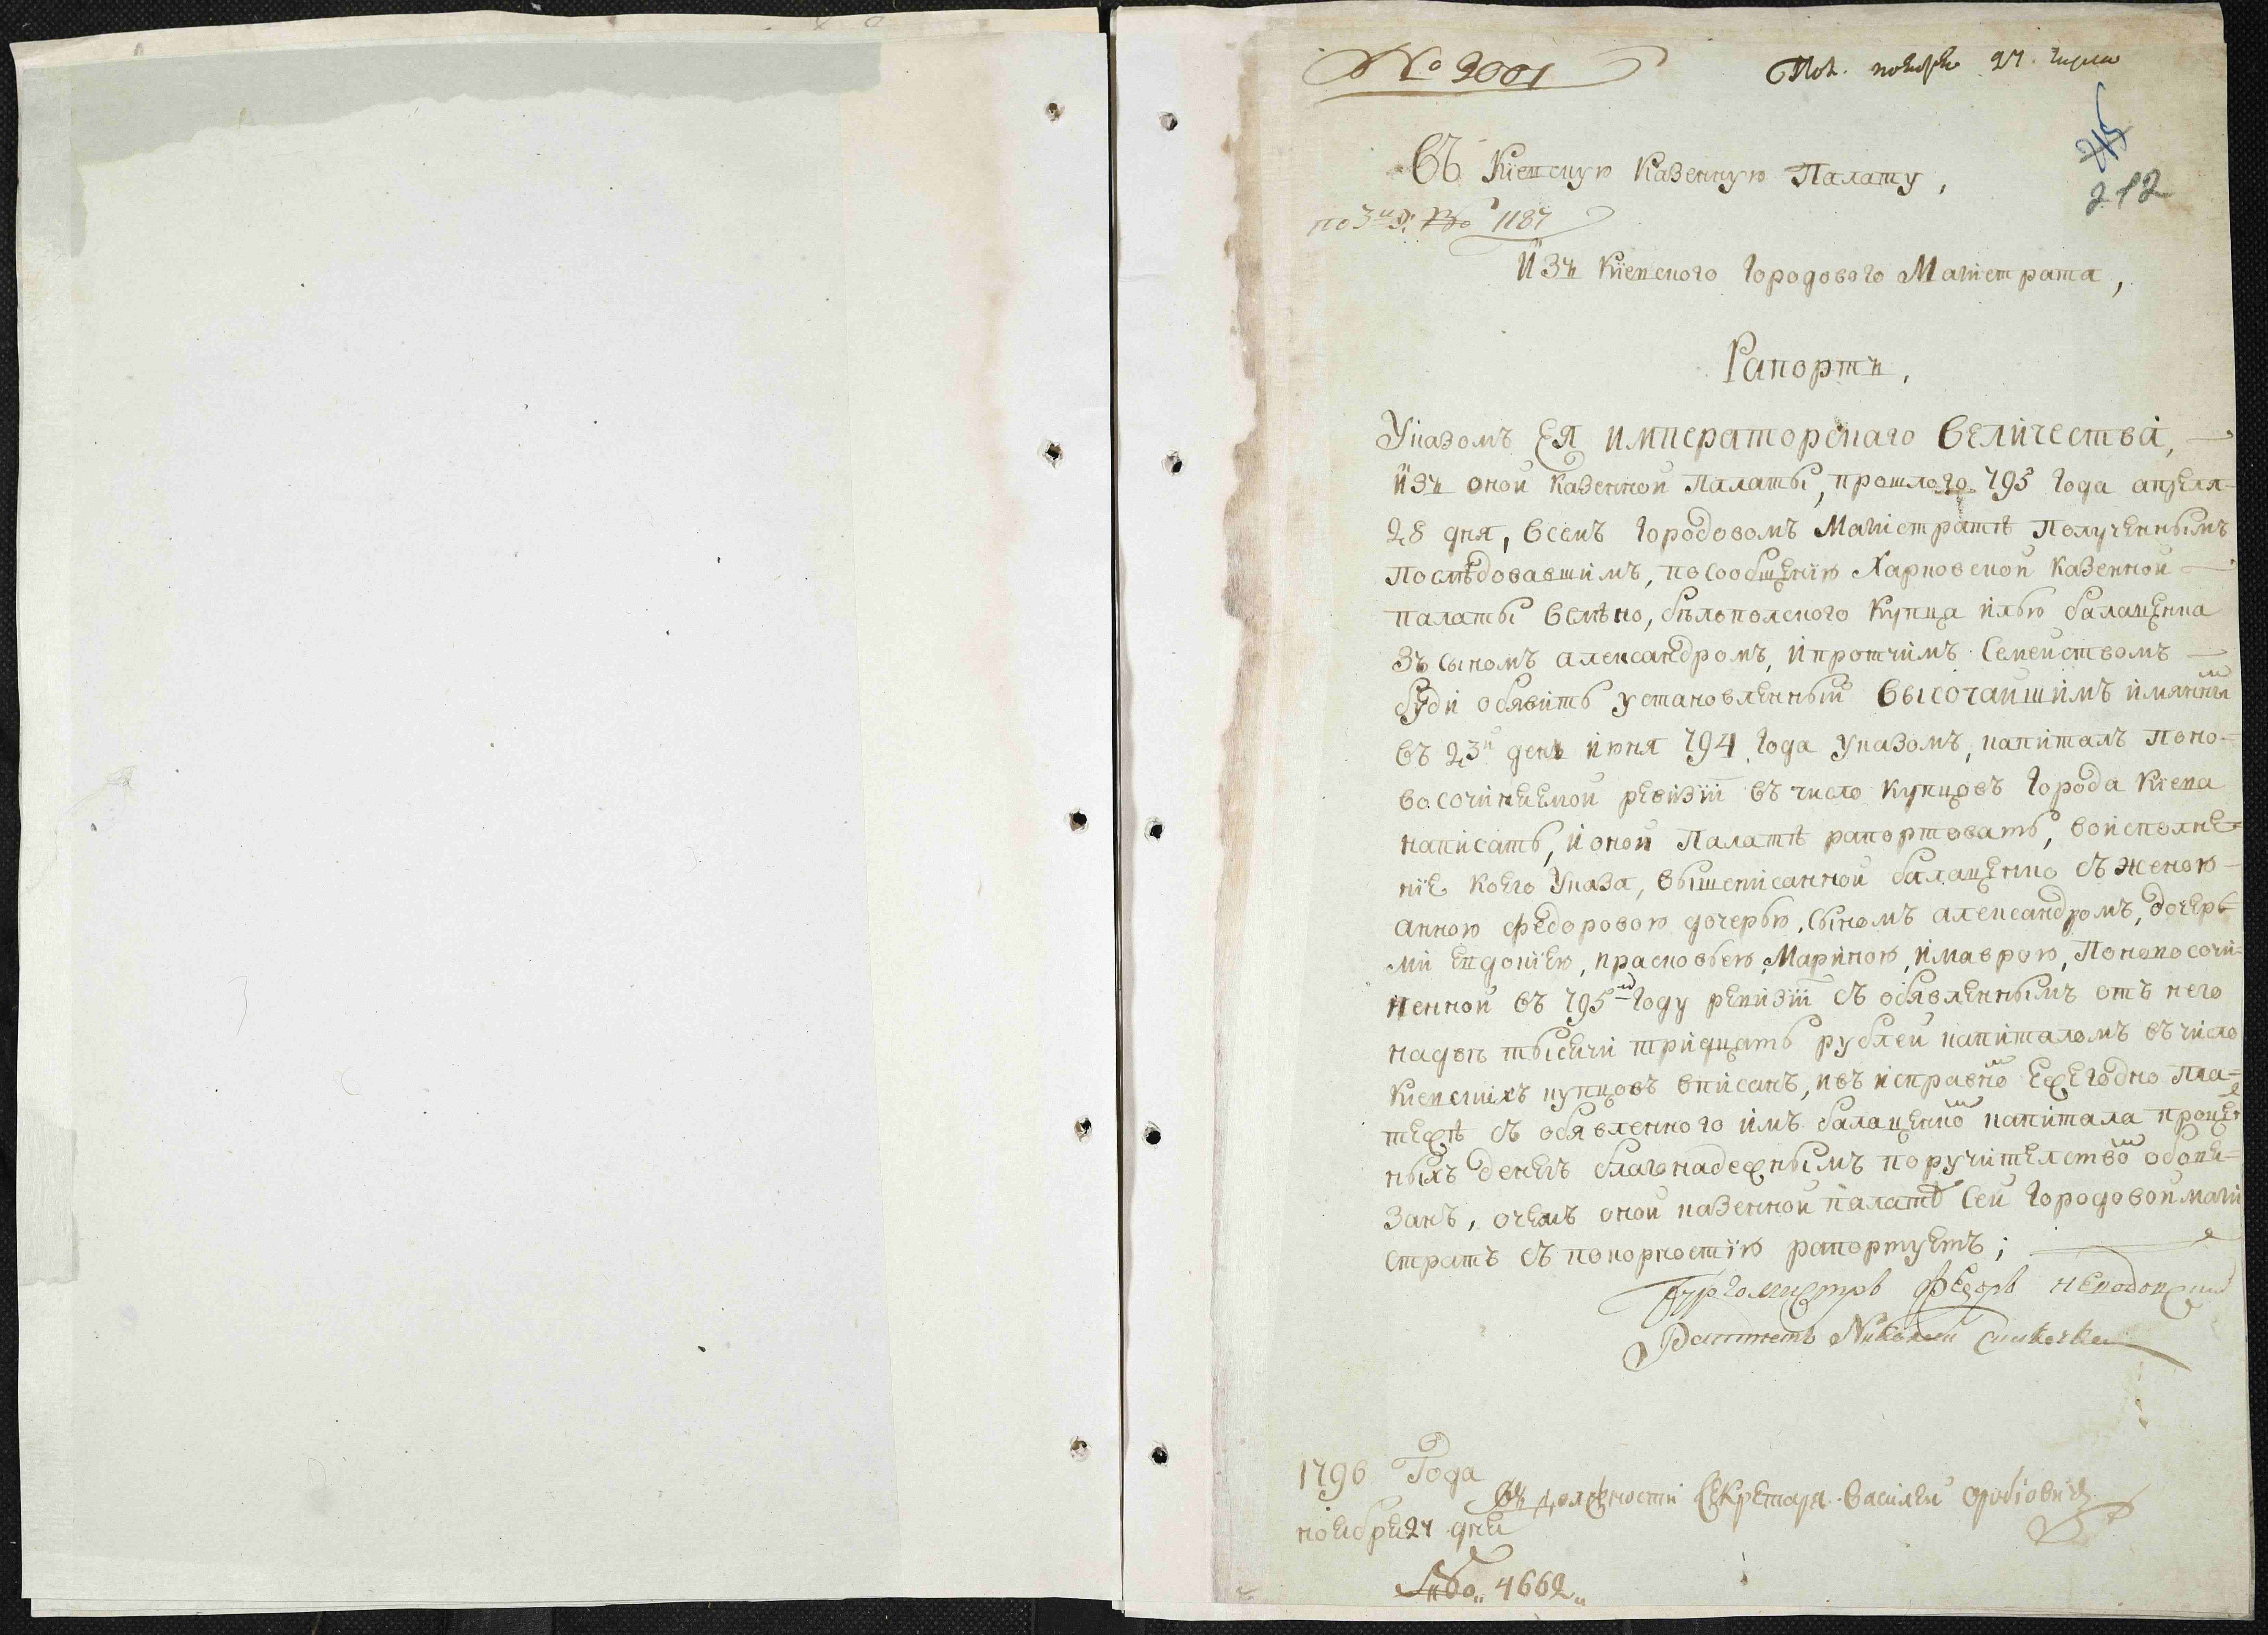 № 9001
Пол. ноября 27. числа
715
212
Въ Кіевскую Казенную Палату,
по 3й Э: № 1187
Изъ Кіевского Городового Магистрата,
Рапортъ,
Указомъ Ея Императорскаго Величества,
изъ оной Казенной Палаты, прошлого 795 Года апреля
28 дня, всемъ Городовомъ Магистратѣ Полученнымъ
Послѣдовавшимъ, посообщенію Харковской Казенной
палаты велѣно, бѣлополского Купца илью балашенка
Зъ сыномъ александромъ, ипротчимъ Семействомъ
буди обявитъ установленный Высочайшимъ имянны м
въ 23й день июня 794 Года Указомъ, капиталъ Поно-
во сочиняемой ревизіи въ число Купцовъ Города Кіева
написать, и оной Палатѣ рапортовать, воисполне-
ніе Коего Указа, вышеписанной балашенко съ женою
анною федоровою дочерью, сыномъ александромъ, дочерь-
ми евдокіею, прасковьею, Мариною, имаврою, Поновосочи-
ненной въ 795 м Году ревизіи съ обявленнымъ отъ него
надвѣ тысячи тридцать рублей капиталомъ въ число
Кіевскихъ купцовъ вписанъ, ивъ исправно м ежегодно пла-
тежѣ съ обявленного имъ балашенко м капитала процен
ныхъ денегъ благонадежнымъ поручителство м обовя-
занъ, очемъ оной казенной палатѣ Сей Городовой маги
стратъ съ покорностію рапортуетъ;
Бургомистръ Федоръ
Ратманъ Николай
1796 Года
ноября 27 дня
Въ должности Секретаря Василей
№ 4662